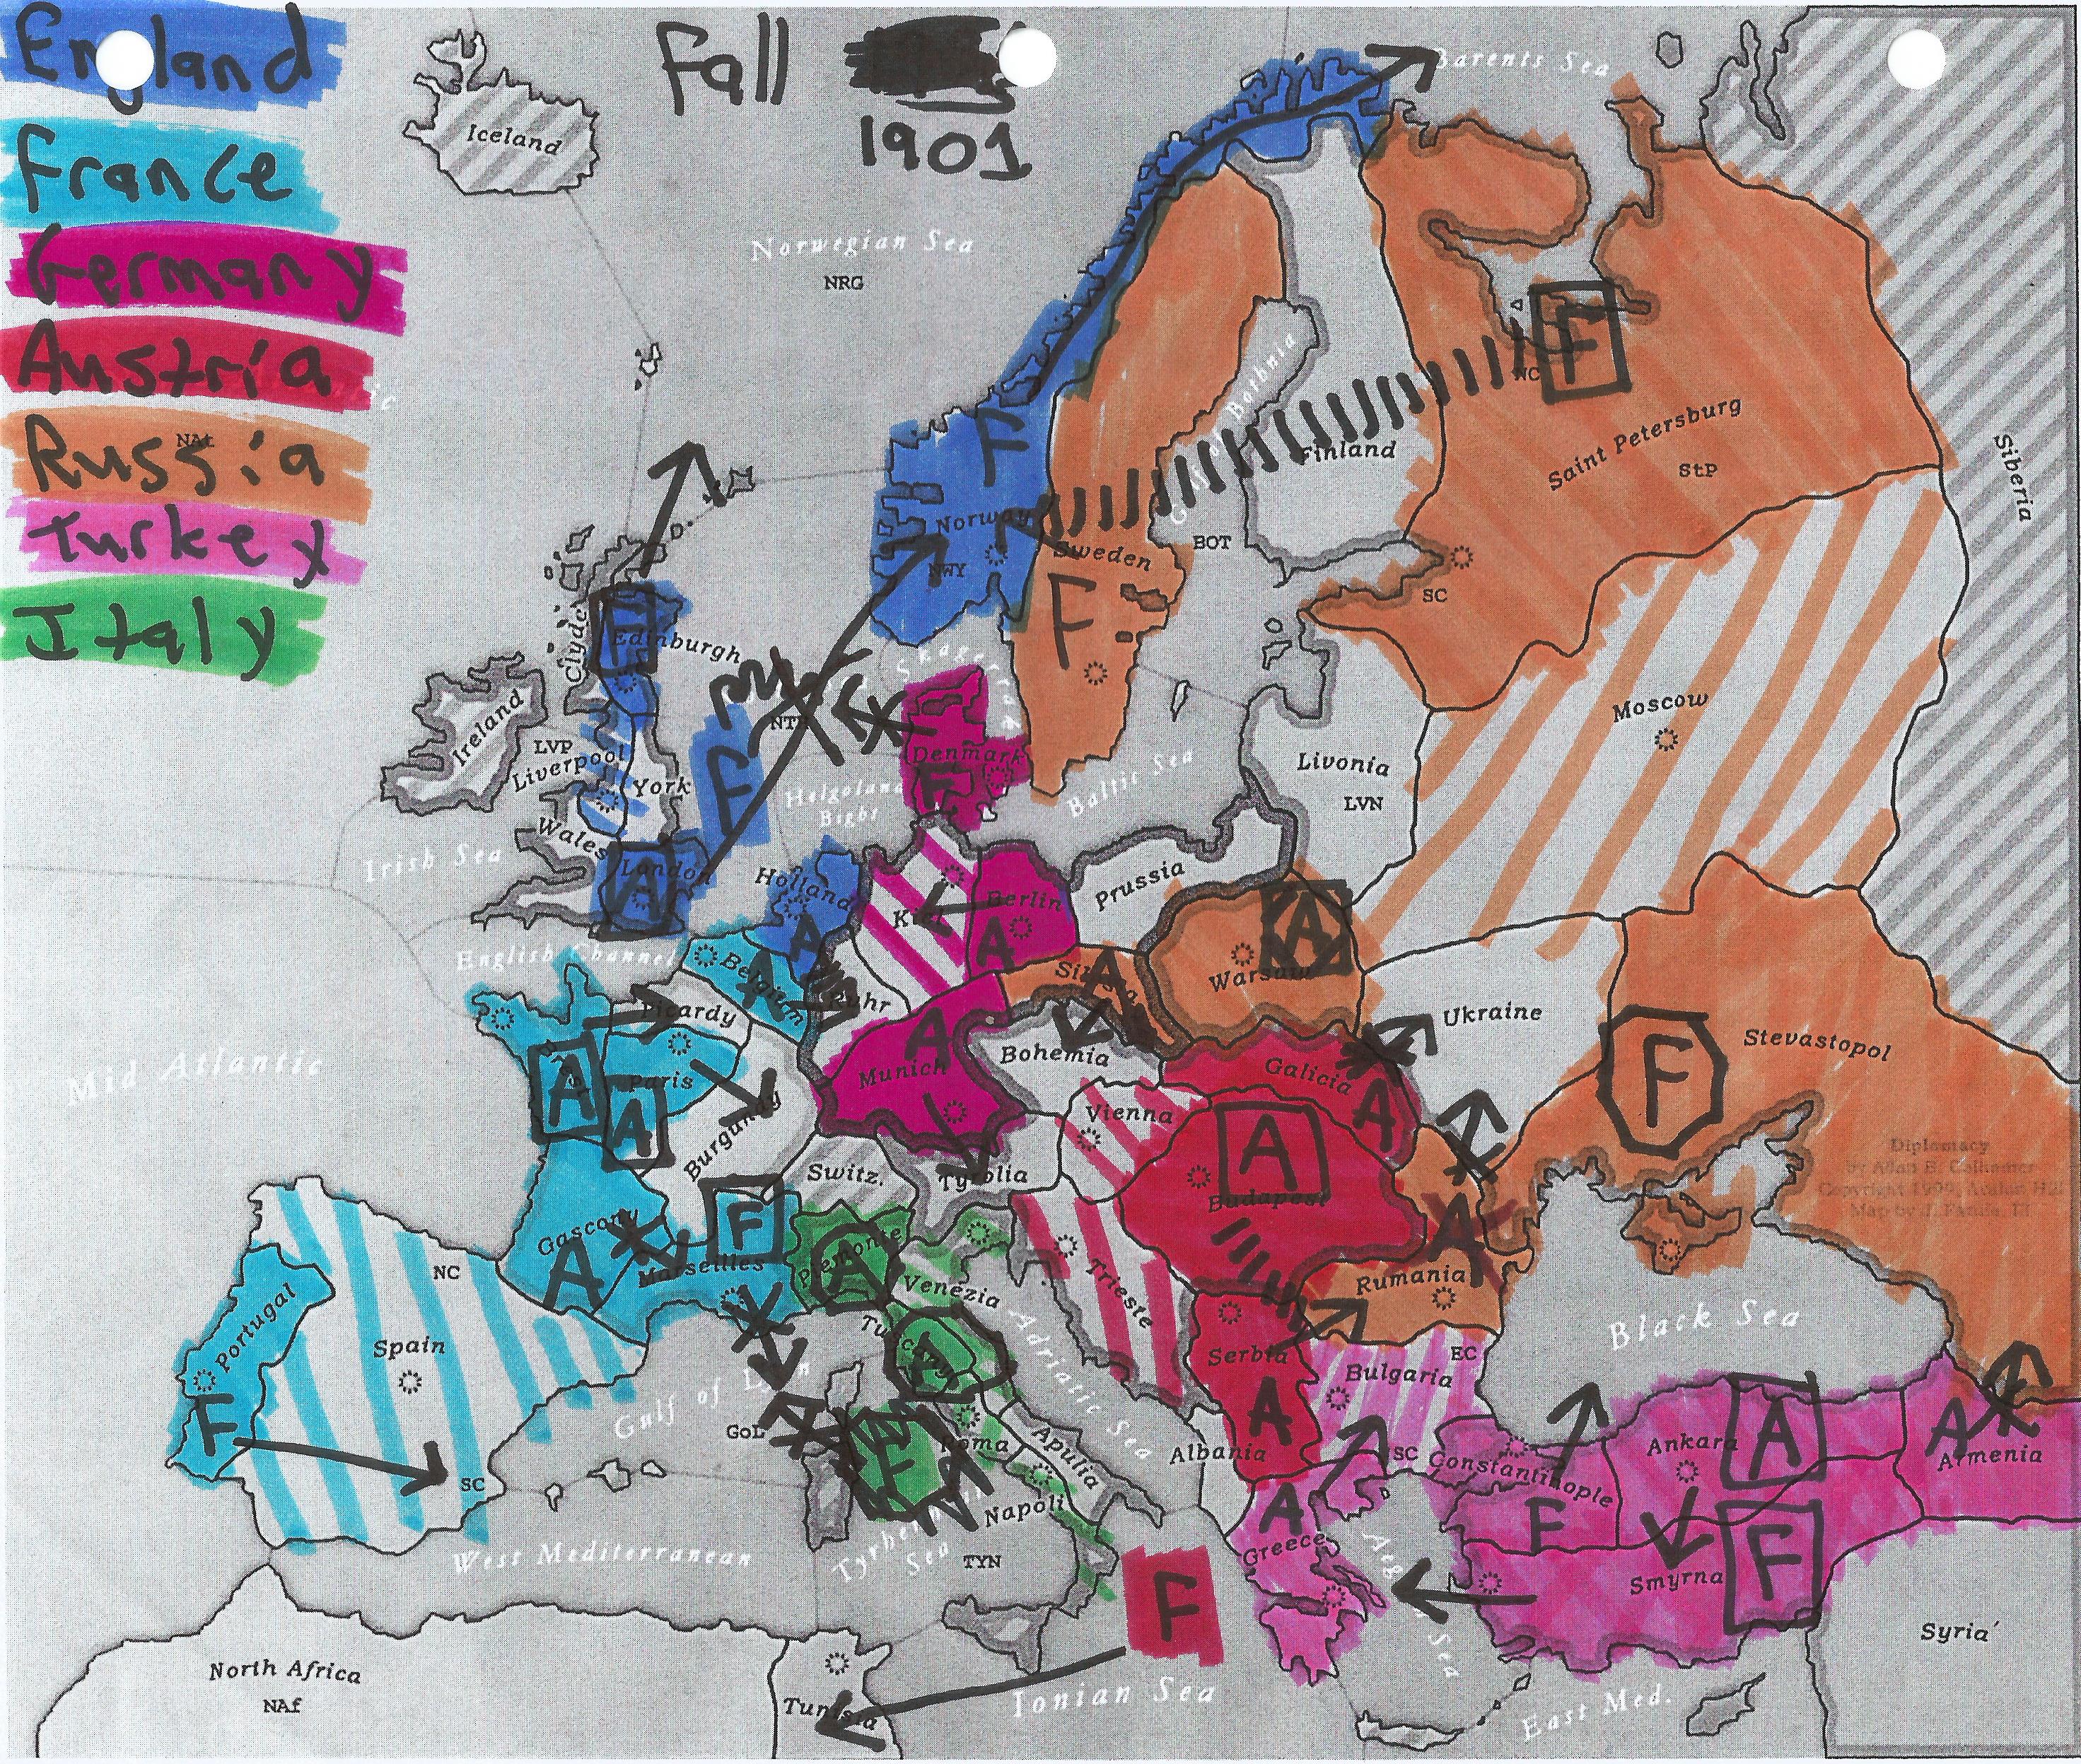 England
Fall
1901
France
Germany
Austria
Russia
NAt
Turkey
Italy
Iceland
Barents Sea
Norwegian Sea
NRG
NC
Saint Petersburg
StP
Siberia
Finland
Gulf of Bothnia
BOT
SC
F
F
Norway
NWY
Sweden
F
Clyde
F
Edinburgh
Skagerrak
NTH
Ireland
LVP
Liverpool
York
F
Denmark
F
Helgoland
Bight
Baltic Sea
Livonia
LVN
Moscow
Wales
Irish Sea
London
A
Holland
A
Kiel
Berlin
A
Prussia
Warsaw
A
English Channel
Belgium
Ruhr
Silesia
A
Ukraine
Stevastopol
F
Picardy
Mid Atlantic
Paris
A
A
Burgundy
A
Munich
Bohemia
Galicia
A
Vienna
Switz.
Tyrolia
A
Budapest
Diplomacy
by Allan B. Calhamer
Copyright 1999, Avalon Hill
Gascony
A
F
Marseilles
Piemonte
A
Venezia
Trieste
A
Rumania
NC
Portugal
Spain
F
SC
Tuscany
Adriatic Sea
Serbia
A
Bulgaria
EC
SC
Black Sea
Gulf of Lyon
GoL
Roma
Apulia
Albania
Constantinople
F
Ankara
A
A
Armenia
F
Napoli
A
Greece
West Mediterranean
Tyrhenian
Sea
TYN
F
Aegean Sea
Smyrna
F
Syria
North Africa
NAf
Tunisia
Ionian Sea
East Med.